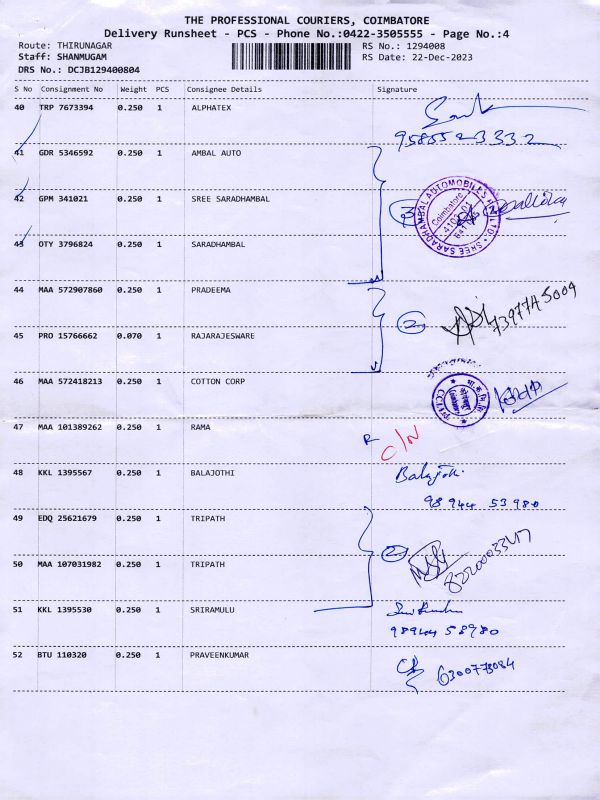 THE PROFESSIONAL COURIERS, COIMBATORE
Delivery Runsheet - PCS - Phone No.:0422-3505555 - Page No.:4
Route: THIRUNAGAR RS No.: 1294008
Staff: SHANMUGAM RS Date: 22-Dec-2023
DRS No.: DCJB129400804
S No Consignment No Weight PCS Consignee Details Signature
40 TRP 7673394 0.250 1 ALPHATEX
9585523332
41 GDR 5346592 0.250 1 AMBAL AUTO
42 GPM 341021 0.250 1 SREE SARADHAMBAL
3
SREE SARADHAMBAL AUTOMOBILES
Coimbatore
43 OTY 3796824 0.250 1 SARADHAMBAL
44 MAA 572907860 0.250 1 PRADEEMA
2
45 PRO 15766662 0.070 1 RAJARAJESWARE
46 MAA 572418213 0.250 1 COTTON CORP
47 MAA 101389262 0.250 1 RAMA
R C/N
48 KKL 1395567 0.250 1 BALAJOTHI
98944 53980
49 EDQ 25621679 0.250 1 TRIPATH
2
50 MAA 107031982 0.250 1 TRIPATH
51 KKL 1395530 0.250 1 SRIRAMULU
98944 58980
52 BTU 110320 0.250 1 PRAVEENKUMAR